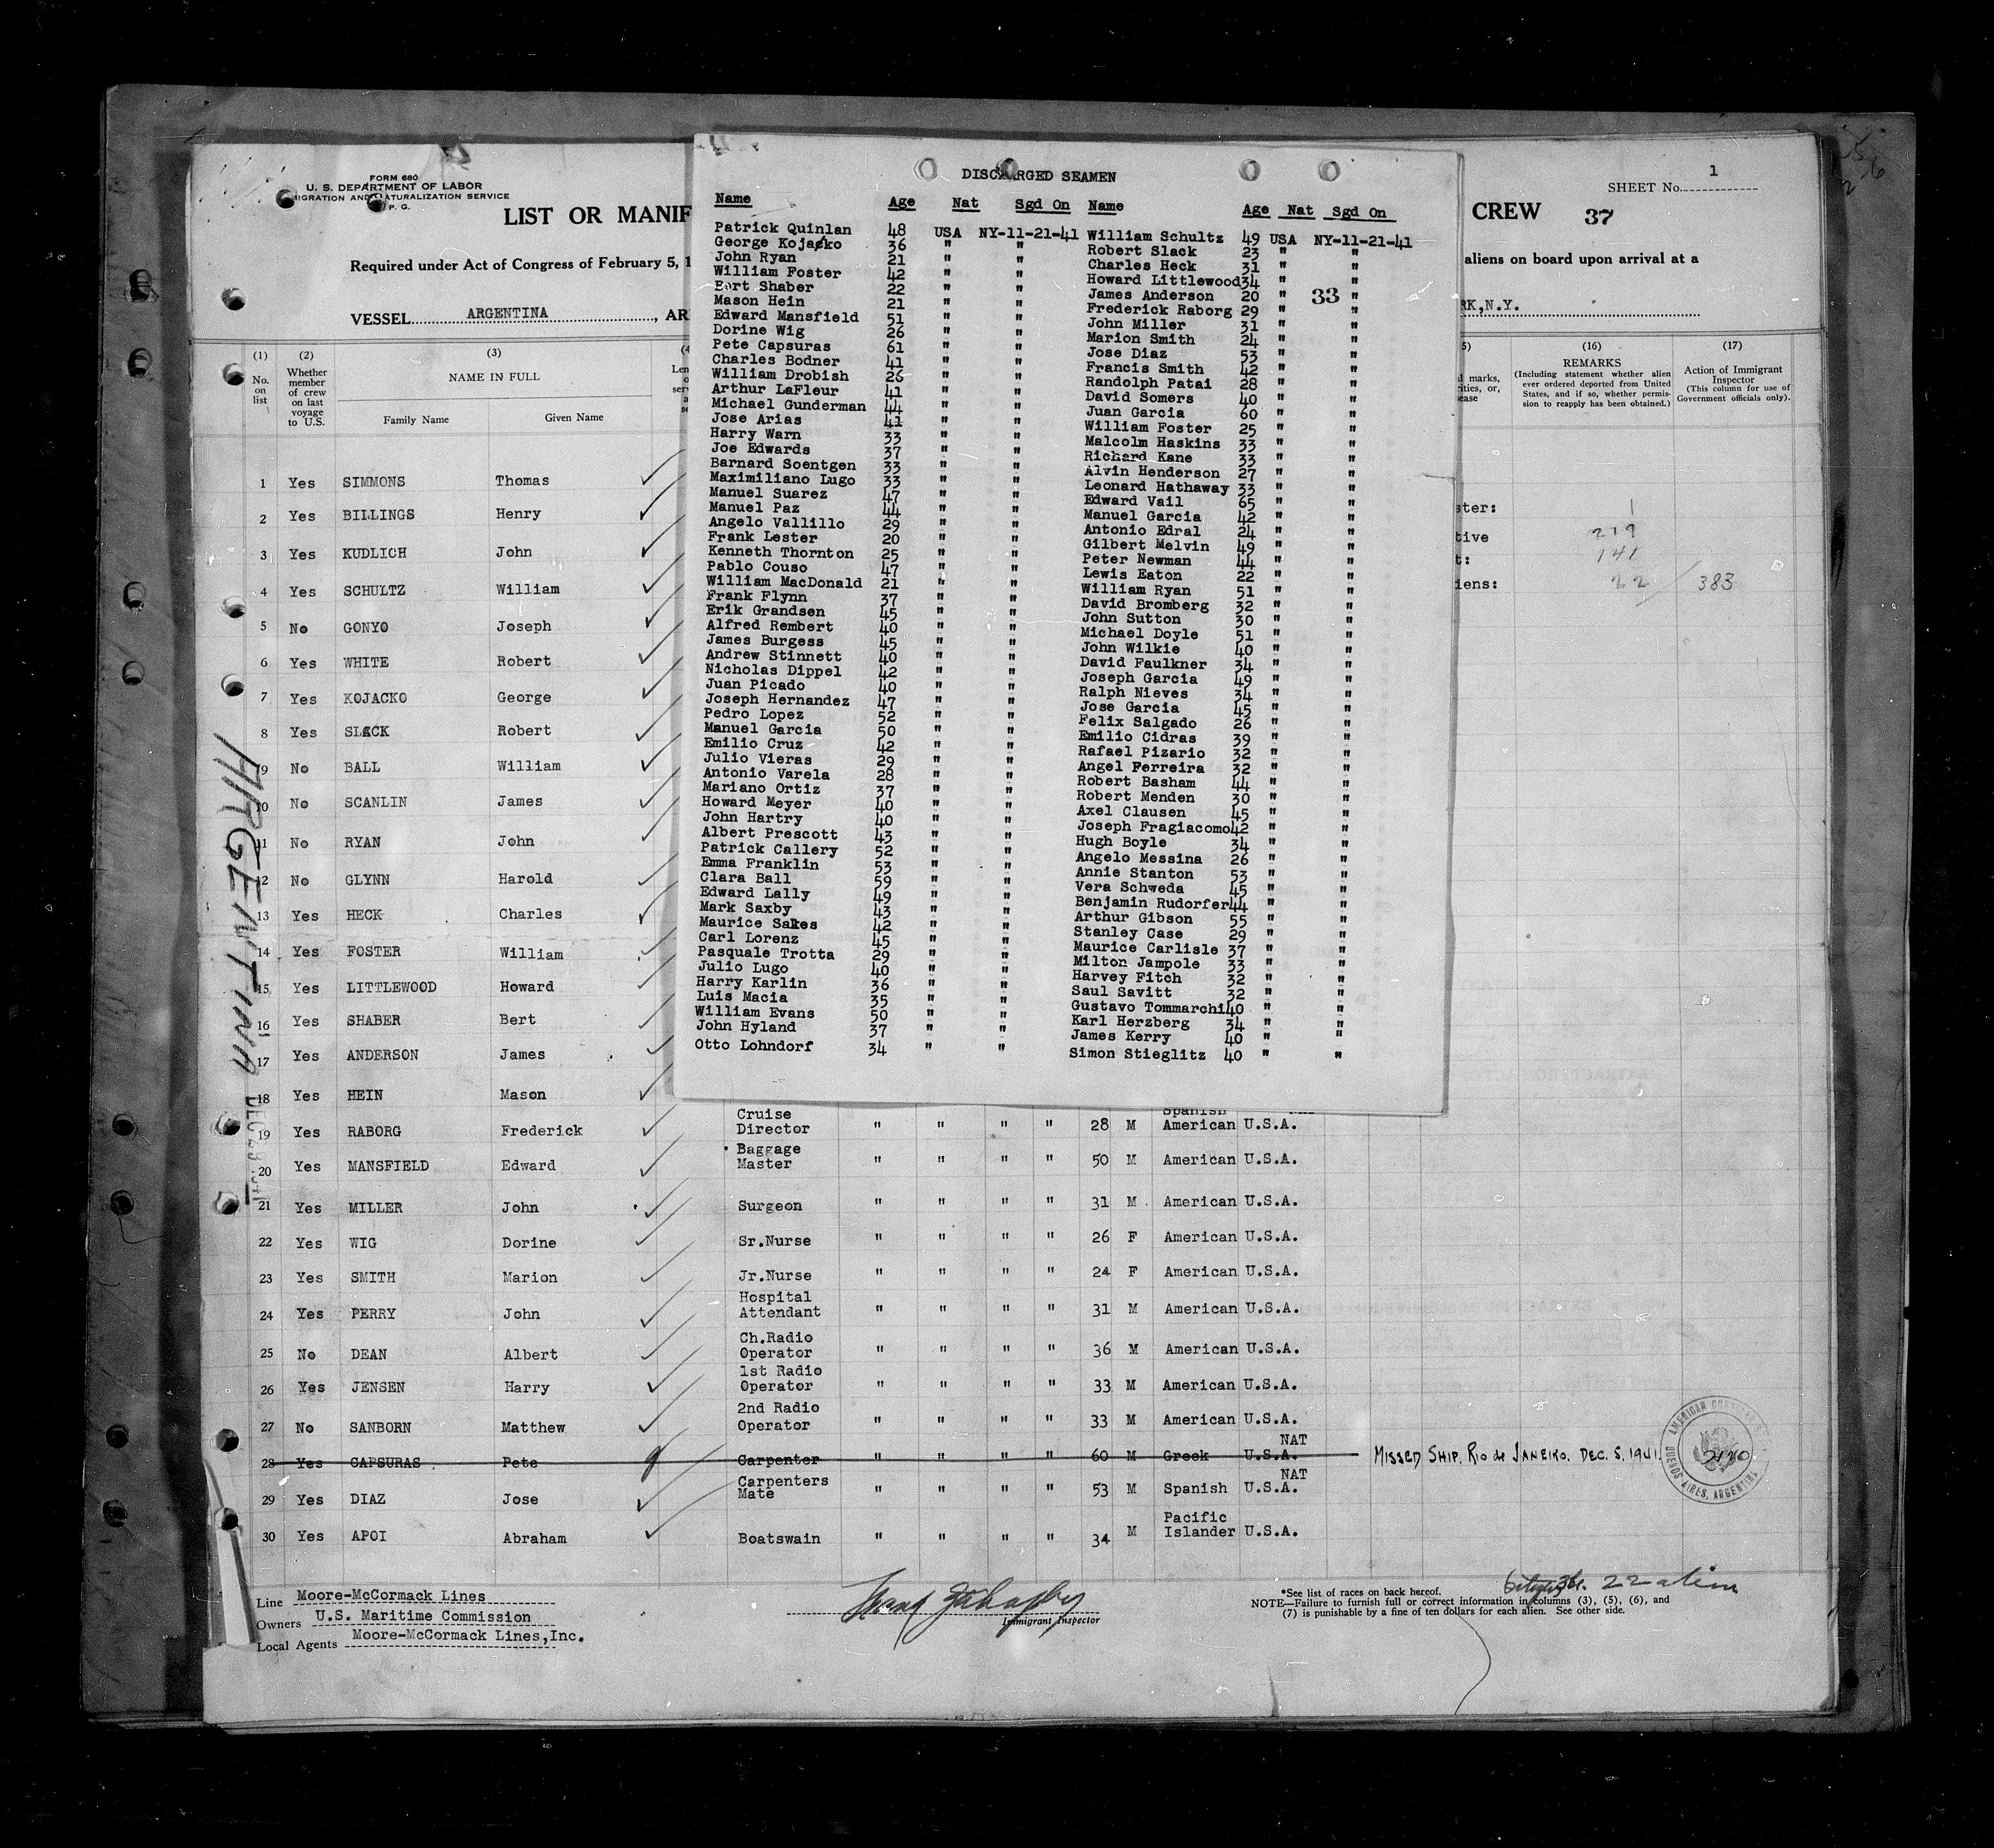 FORM 680
U. S. DEPARTMENT OF LABOR
MIGRATION AND NATURALIZATION SERVICE
P. G.
LIST OR MANIF
CREW 37
SHEET No. 1
Required under Act of Congress of February 5, 1
aliens on board upon arrival at a
VESSEL ARGENTINA, AR
RK,N.Y.
DISCHARGED SEAMEN
Name Age Nat Sgd On Name Age Nat Sgd On
Patrick Quinlan 48 USA NY-11-21-41 William Schultz 49 USA NY-11-21-41
George Kojacko 36 " " Robert Slack 23 " "
John Ryan 21 " " Charles Heck 31 " "
William Foster 42 " " Howard Littlewood 34 " "
Bert Shaber 22 " " James Anderson 20 " 33 "
Mason Hein 21 " " Frederick Raborg 29 " "
Edward Mansfield 51 " " John Miller 31 " "
Dorine Wig 26 " " Marion Smith 24 " "
Pete Capsuras 61 " " Jose Diaz 53 " "
Charles Bodner 41 " " Francis Smith 42 " "
William Drobish 26 " " Randolph Patai 28 " "
Arthur LaFleur 41 " " David Somers 40 " "
Michael Gunderman 44 " " Juan Garcia 60 " "
Jose Arias 41 " " William Foster 25 " "
Harry Warn 33 " " Malcolm Haskins 33 " "
Joe Edwards 37 " " Richard Kane 33 " "
Barnard Soentgen 33 " " Alvin Henderson 27 " "
Maximiliano Lugo 33 " " Leonard Hathaway 33 " "
Manuel Suarez 47 " " Edward Vail 65 " "
Manuel Paz 44 " " Manuel Garcia 42 " "
Angelo Vallillo 29 " " Antonio Edral 24 " "
Frank Lester 20 " " Gilbert Melvin 49 " "
Kenneth Thornton 25 " " Peter Newman 44 " "
Pablo Couso 47 " " Lewis Eaton 22 " "
William MacDonald 21 " " William Ryan 51 " "
Frank Flynn 37 " " David Bromberg 32 " "
Erik Grandsen 45 " " John Sutton 30 " "
Alfred Rembert 40 " " Michael Doyle 51 " "
James Burgess 45 " " John Wilkie 40 " "
Andrew Stinnett 40 " " David Faulkner 34 " "
Nicholas Dippel 42 " " Joseph Garcia 49 " "
Juan Picado 40 " " Ralph Nieves 34 " "
Joseph Hernandez 47 " " Jose Garcia 45 " "
Pedro Lopez 52 " " Felix Salgado 26 " "
Manuel Garcia 50 " " Emilio Cidras 39 " "
Emilio Cruz 42 " " Rafael Pizario 32 " "
Julio Vieras 29 " " Angel Ferreira 32 " "
Antonio Varela 28 " " Robert Basham 44 " "
Mariano Ortiz 37 " " Robert Menden 30 " "
Howard Meyer 40 " " Axel Clausen 45 " "
John Hartry 40 " " Joseph Fragiacomo 42 " "
Albert Prescott 43 " " Hugh Boyle 34 " "
Patrick Callery 52 " " Angelo Messina 26 " "
Emma Franklin 53 " " Annie Stanton 53 " "
Clara Ball 59 " " Vera Schweda 45 " "
Edward Lally 49 " " Benjamin Rudorfer 44 " "
Mark Saxby 43 " " Arthur Gibson 55 " "
Maurice Sakes 42 " " Stanley Case 29 " "
Carl Lorenz 45 " " Maurice Carlisle 37 " "
Pasquale Trotta 29 " " Milton Jampole 33 " "
Julio Lugo 40 " " Harvey Fitch 32 " "
Harry Karlin 36 " " Saul Savitt 32 " "
Luis Macia 35 " " Gustavo Tommarchi 40 " "
William Evans 50 " " Karl Herzberg 34 " "
John Hyland 37 " " James Kerry 40 " "
Otto Lohndorf 34 " " Simon Stieglitz 40 " "
(1) (2) (3) (16) (17)
No. on list
Whether member of crew on last voyage to U.S.
NAME IN FULL
Family Name Given Name
REMARKS
(Including statement whether alien ever ordered deported from United States, and if so, whether permission to reapply has been obtained.)
Action of Immigrant Inspector
(This column for use of Government officials only).
ster: 1
tive 219
t: 141
iens: 22 383
1 Yes SIMMONS Thomas
2 Yes BILLINGS Henry
3 Yes KUDLICH John
4 Yes SCHULTZ William
5 No GONYO Joseph
6 Yes WHITE Robert
7 Yes KOJACKO George
8 Yes SLACK Robert
9 No BALL William
10 No SCANLIN James
11 No RYAN John
12 No GLYNN Harold
13 Yes HECK Charles
14 Yes FOSTER William
15 Yes LITTLEWOOD Howard
16 Yes SHABER Bert
17 Yes ANDERSON James
18 Yes HEIN Mason
Spanish
19 Yes RABORG Frederick Cruise Director " " " " 28 M American U.S.A.
20 Yes MANSFIELD Edward Baggage Master " " " " 50 M American U.S.A.
21 Yes MILLER John Surgeon " " " " 31 M American U.S.A.
22 Yes WIG Dorine Sr.Nurse " " " " 26 F American U.S.A.
23 Yes SMITH Marion Jr.Nurse " " " " 24 F American U.S.A.
24 Yes PERRY John Hospital Attendant " " " " 31 M American U.S.A.
25 No DEAN Albert Ch.Radio Operator " " " " 36 M American U.S.A.
26 Yes JENSEN Harry 1st Radio Operator " " " " 33 M American U.S.A.
27 No SANBORN Matthew 2nd Radio Operator " " " " 33 M American U.S.A.
28 Yes CAPSURAS Pete Carpenter " " " " 60 M Greek NAT U.S.A. MISSED SHIP. RIO de JANEIRO. DEC. 5. 1941.
29 Yes DIAZ Jose Carpenters Mate " " " " 53 M Spanish NAT U.S.A.
30 Yes APOI Abraham Boatswain " " " " 34 M Pacific Islander U.S.A.
ARGENTINA
AMERICAN CONSULAR
BUENOS AIRES, ARGENTINA
Line Moore-McCormack Lines
Owners U.S. Maritime Commission
Local Agents Moore-McCormack Lines,Inc.
Immigrant Inspector
*See list of races on back hereof.
NOTE—Failure to furnish full or correct information in columns (3), (5), (6), and
(7) is punishable by a fine of ten dollars for each alien. See other side.
22 alien